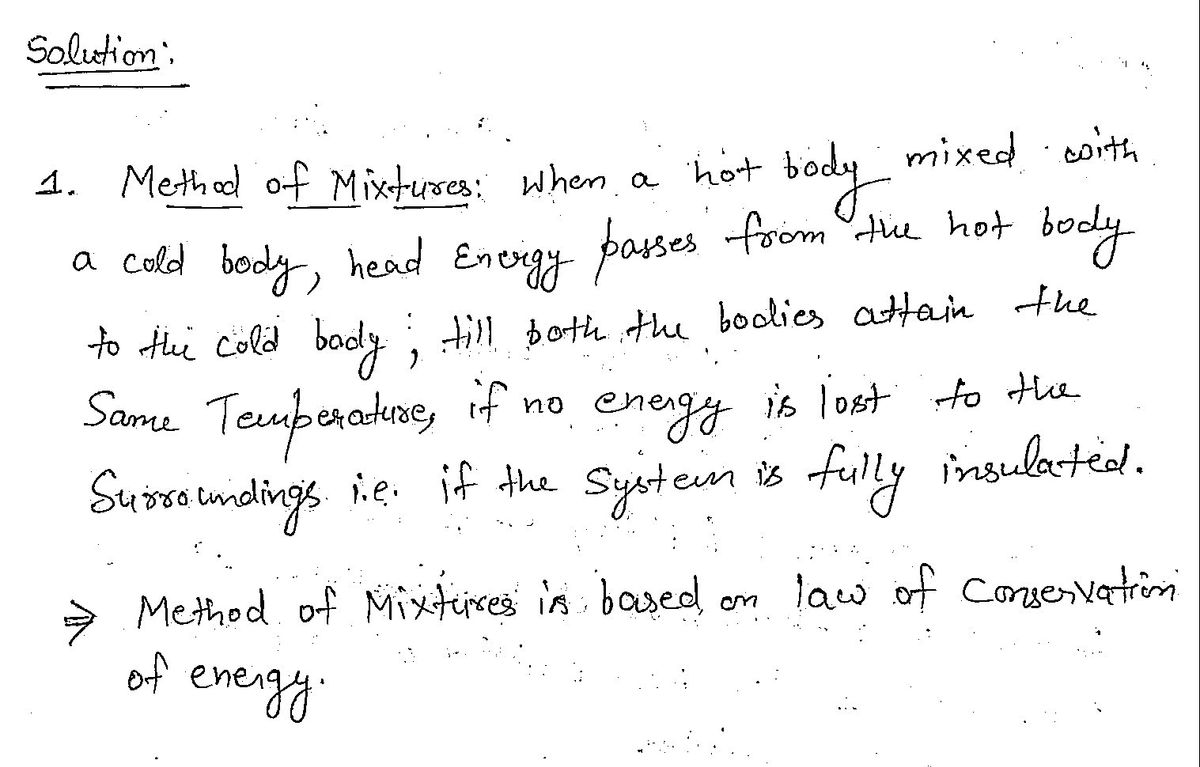 Solution:
1. Method of Mixtures: When a hot body mixed with
a cold body, head Energy passes from the hot body
to the cold body; till both the bodies attain the
Same Temperature, if no energy is lost to the
Surroundings i.e. if the System is fully insulated.
⇒ Method of Mixtures is based on law of Conservation
of energy.